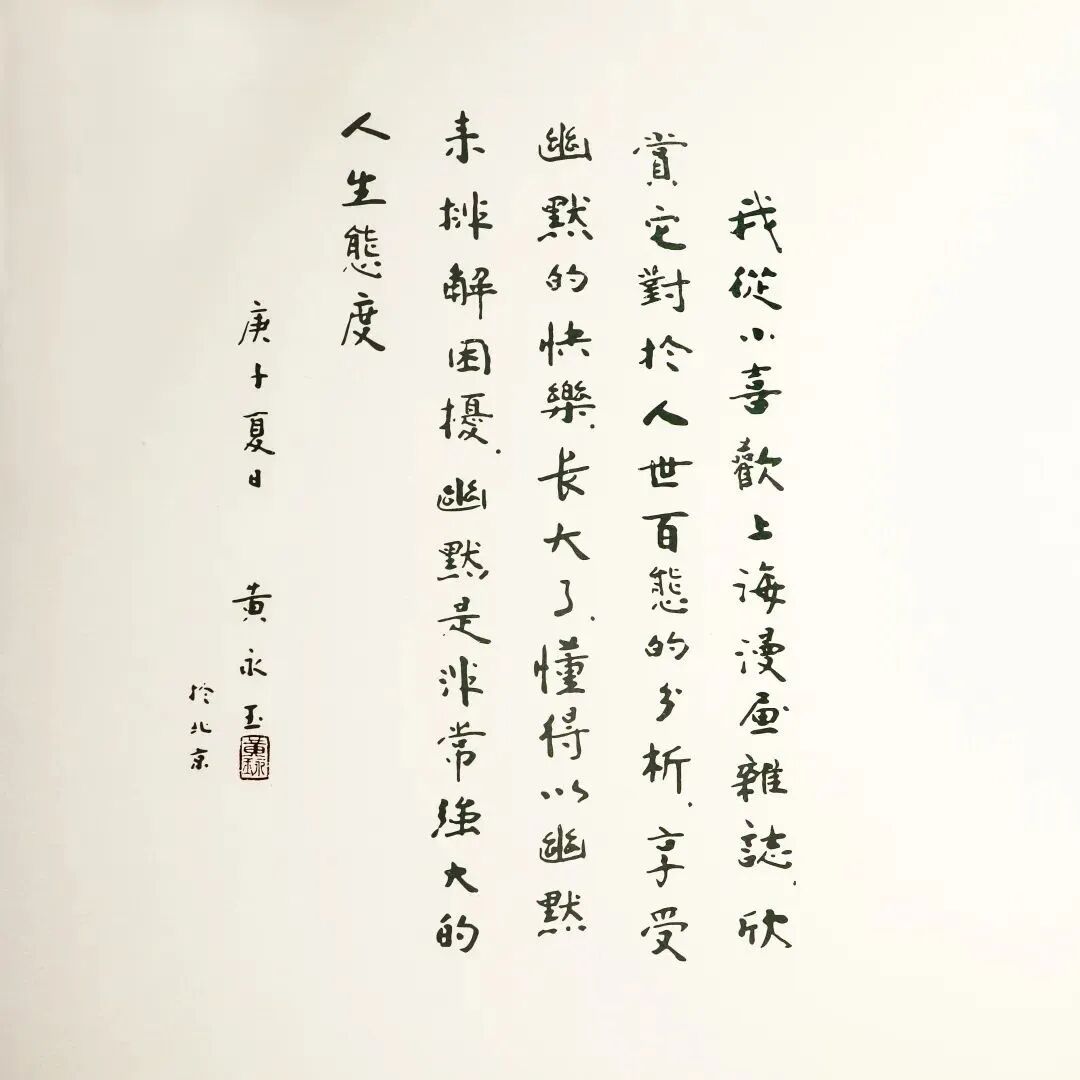 我從小喜歡上海漫画雜誌.欣
賞它對於人世百態的分析.享受
幽默的快樂.長大了.懂得以幽默
来排解困擾.幽默是非常強大的
人生態度
庚子夏日 黃永玉
於北京